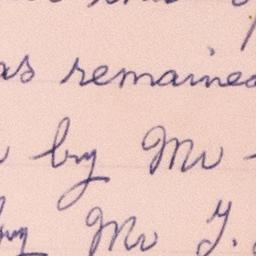 as remained
by Mr
by Mr J.